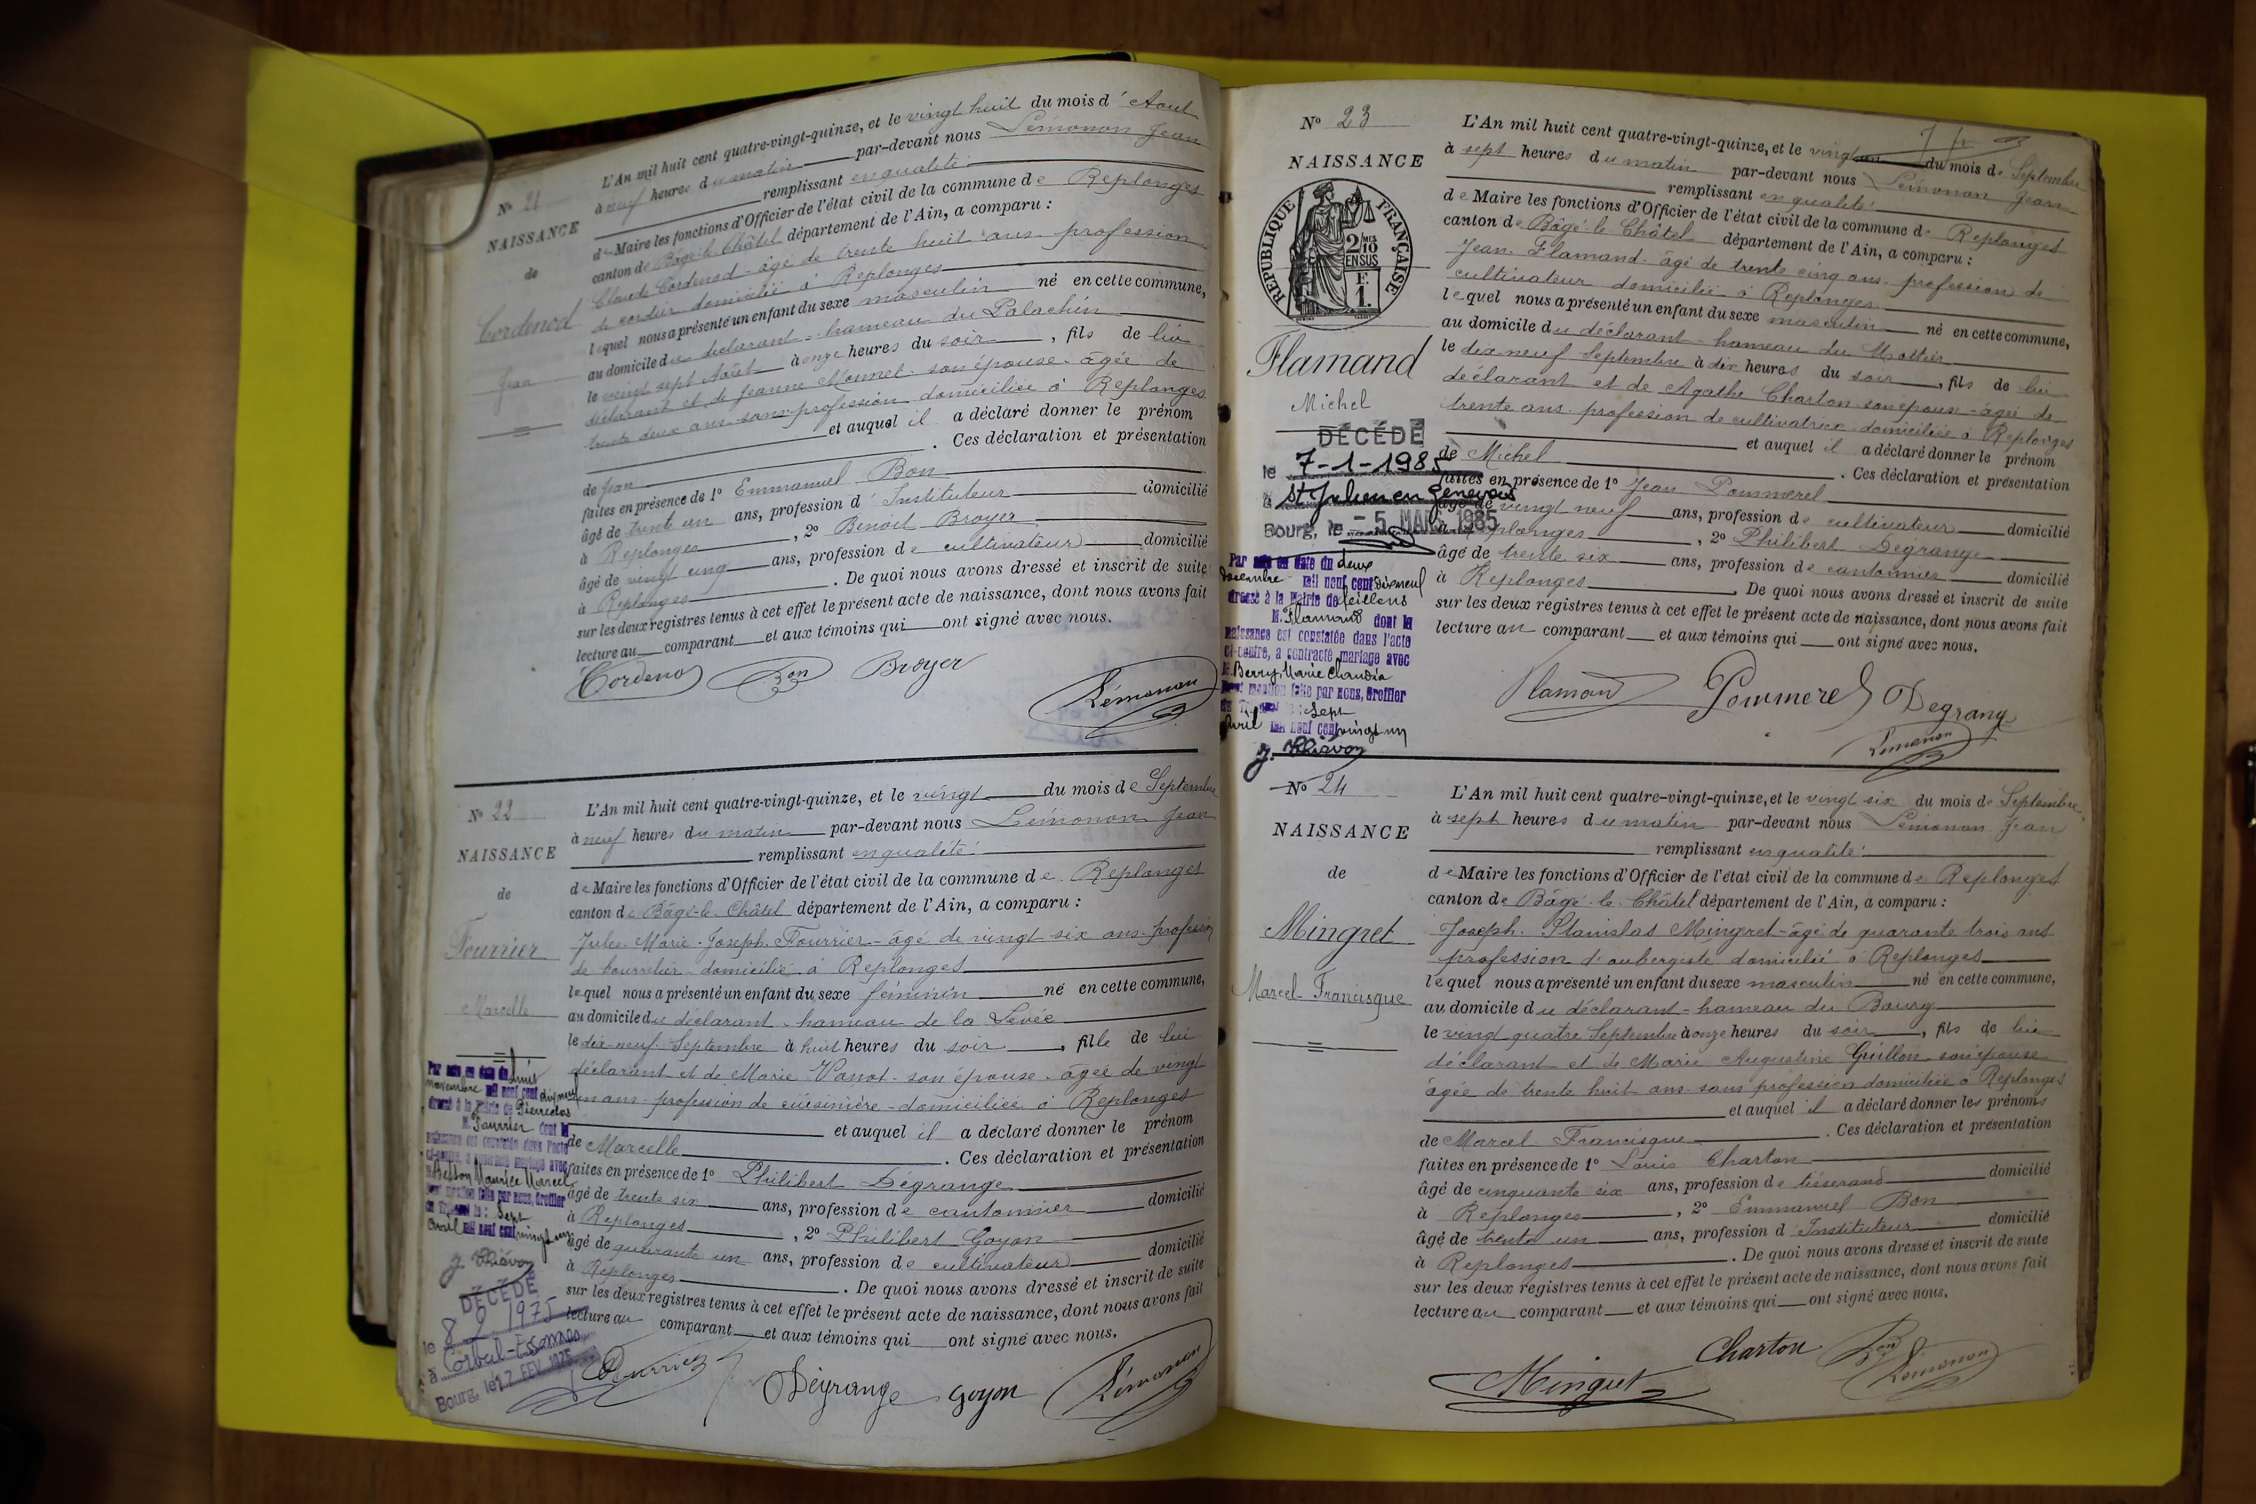 N° 21
NAISSANCE
de
Cordenod
Jean
L'An mil huit cent quatre-vingt-quinze, et le vingt huit du mois d'Aout
à neuf heures du matin par-devant nous Lémonon Jean
remplissant en qualité
de Maire les fonctions d'Officier de l'état civil de la commune de Replonges
canton de Bâgé-le-Châtel département de l'Ain, a comparu :
Claude Cordenod - âgé de trente huit ans profession
de cordier domicilié à Replonges
lequel nous a présenté un enfant du sexe masculin né en cette commune,
au domicile du déclarant - hameau du Palachin
le vingt sept Août à onze heures du soir, fils de lui
déclarant et de Jeanne Monnet son épouse âgée de
trente deux ans sans profession domiciliée à Replonges
et auquel il a déclaré donner le prénom
de Jean. Ces déclaration et présentation
faites en présence de 1° Emmanuel Bon
âgé de trent un ans, profession d'Instituteur domicilié
à Replonges, 2° Benoit Broyer
âgé de vingt cinq ans, profession de cultivateur domicilié
à Replonges. De quoi nous avons dressé et inscrit de suite
sur les deux registres tenus à cet effet le présent acte de naissance, dont nous avons fait
lecture au comparant et aux témoins qui ont signé avec nous.
Cordenod Bon Broyer
Lémonon
N° 22
NAISSANCE
de
Fourrier
Marcelle
L'An mil huit cent quatre-vingt-quinze, et le vingt du mois de Septembre
à neuf heures du matin par-devant nous Lémonon Jean
remplissant en qualité
de Maire les fonctions d'Officier de l'état civil de la commune de Replonges
canton de Bâgé-le-Châtel département de l'Ain, a comparu :
Jules Marie Joseph Fourrier - âgé de vingt six ans profession
de bourrelier domicilié à Replonges
lequel nous a présenté un enfant du sexe féminin né en cette commune,
au domicile du déclarant - hameau de la Levée
le dix-neuf Septembre à huit heures du soir, fille de lui
déclarant et de Marie Vanot son épouse âgée de vingt
un ans profession de cuisinière domiciliée à Replonges
et auquel il a déclaré donner le prénom
de Marcelle. Ces déclaration et présentation
faites en présence de 1° Philibert Dégrange
âgé de trente six ans, profession de cantonnier domicilié
à Replonges, 2° Philibert Goyon
âgé de quarante un ans, profession de cultivateur domicilié
à Replonges. De quoi nous avons dressé et inscrit de suite
sur les deux registres tenus à cet effet le présent acte de naissance, dont nous avons fait
lecture au comparant et aux témoins qui ont signé avec nous.
Par acte en date du huit
novembre mil neuf cent dix neuf
dressé à la Mairie de
M. Fourrier dont la
naissance est constatée dans l'acte
ci-contre, a contracté mariage avec
M. Besson Maurice Marcel
Dont mention faite par nous, Greffier
Sept
Avril mil neuf cent vingt un
DÉCÉDÉ
le 8 2 1975
à Corbeil-Essonnes
Bourg, le 17 FEV. 1975
Fourrier Dégrange Goyon Lémonon
N° 23
NAISSANCE
RÉPUBLIQUE FRANÇAISE
2/10 EN SUS
F.
1.
Flamand
Michel
L'An mil huit cent quatre-vingt-quinze, et le vingt un du mois de Septembre
à sept heures du matin par-devant nous Lémonon Jean
remplissant en qualité
de Maire les fonctions d'Officier de l'état civil de la commune de Replonges
canton de Bâgé-le-Châtel département de l'Ain, a comparu :
Jean Flamand âgé de trente cinq ans profession de
cultivateur domicilié à Replonges
lequel nous a présenté un enfant du sexe masculin né en cette commune,
au domicile du déclarant - hameau du
le dix neuf Septembre à dix heures du soir, fils de lui
déclarant et de Agathe Charton son épouse - âgée de
trente ans profession de cultivatrice domiciliée à Replonges
et auquel il a déclaré donner le prénom
de Michel. Ces déclaration et présentation
faites en présence de 1° Jean Pommerel
âgé de vingt neuf ans, profession de cultivateur domicilié
à Replonges, 2° Philibert Dégrange
âgé de trente six ans, profession de cantonnier domicilié
à Replonges. De quoi nous avons dressé et inscrit de suite
sur les deux registres tenus à cet effet le présent acte de naissance, dont nous avons fait
lecture au comparant et aux témoins qui ont signé avec nous.
DÉCÉDÉ
le 7-1-1985
à St Julien en Genevois
Bourg, le - 5 MARS 1985
Par acte en date du deux
mil neuf cent dix neuf
dressé à la Mairie de Feillens
M. Flamand dont la
naissance est constatée dans l'acte
ci-contre, a contracté mariage avec
M. Berry, Marie Claudia
Dont mention faite par nous, Greffier
Sept
Avril mil neuf cent vingt un
Flamand Pommerel Degrange
Lémonon
N° 24
NAISSANCE
de
Mingret
Marcel-Francisque
L'An mil huit cent quatre-vingt-quinze, et le vingt six du mois de Septembre
à sept heures du matin par-devant nous Lémonon Jean
remplissant en qualité
de Maire les fonctions d'Officier de l'état civil de la commune de Replonges
canton de Bâgé-le-Châtel département de l'Ain, a comparu :
Joseph Stanislas Mingret - âgé de quarante trois ans
profession d'aubergiste domicilié à Replonges
lequel nous a présenté un enfant du sexe masculin né en cette commune,
au domicile du déclarant - hameau du Bourg
le vingt quatre Septembre à onze heures du soir, fils de lui
déclarant et de Marie Augustine Guillon son épouse
âgée de trente huit ans sans profession domiciliée à Replonges
et auquel il a déclaré donner les prénoms
de Marcel Francisque. Ces déclaration et présentation
faites en présence de 1° Louis Charton
âgé de cinquante six ans, profession de tisserand domicilié
à Replonges, 2° Emmanuel Bon
âgé de trente un ans, profession d'Instituteur domicilié
à Replonges. De quoi nous avons dressé et inscrit de suite
sur les deux registres tenus à cet effet le présent acte de naissance, dont nous avons fait
lecture au comparant et aux témoins qui ont signé avec nous.
Mingret Charton Bon Lémonon